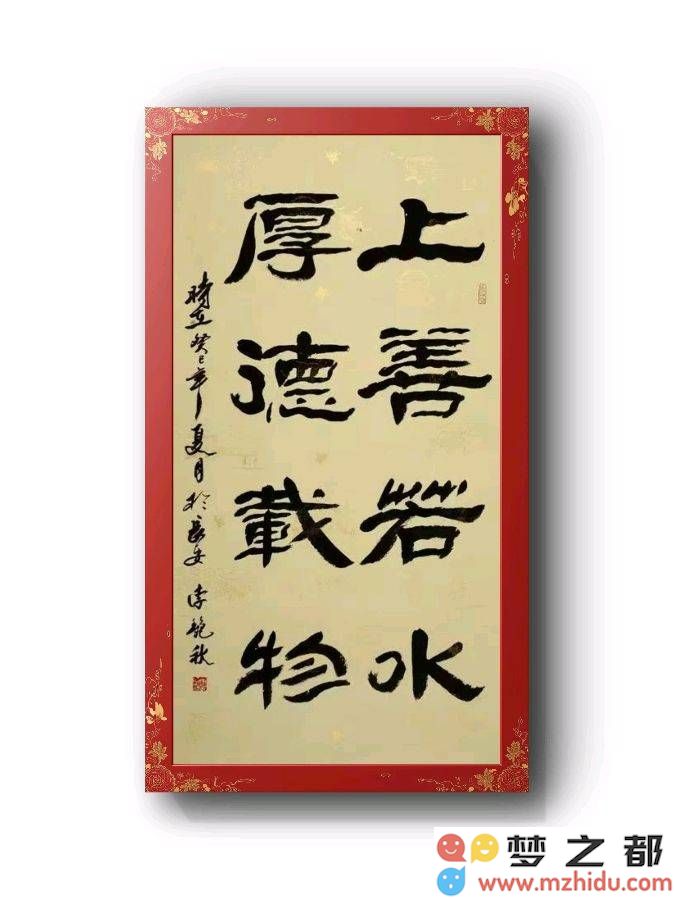 上善若水
厚德載物
時在癸巳年夏月於長安 李艶秋
梦之都
www.mzhidu.com